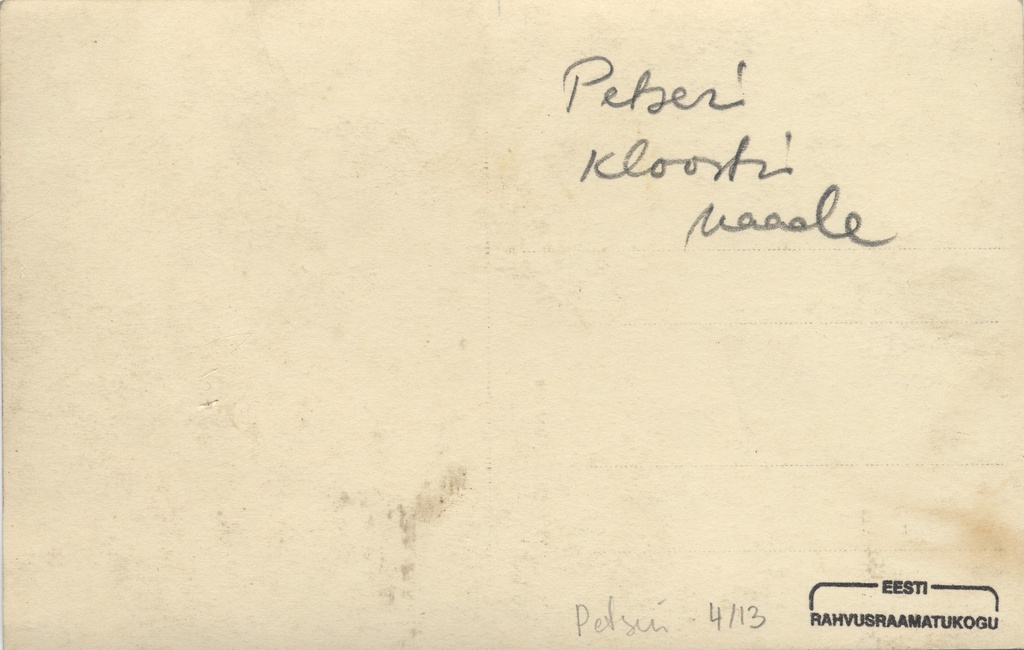 Petseri
kloostri
vaade
Petseri 4/13
EESTI
RAHVUSRAAMATUKOGU